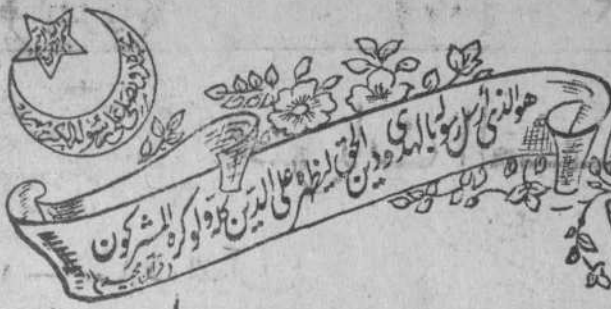 نحمده ونصلی علی رسولہ الکریم
هو الذی أرسل رسوله بالهدی ودین الحق لیظهره علی الدین کله ولو کره المشرکون